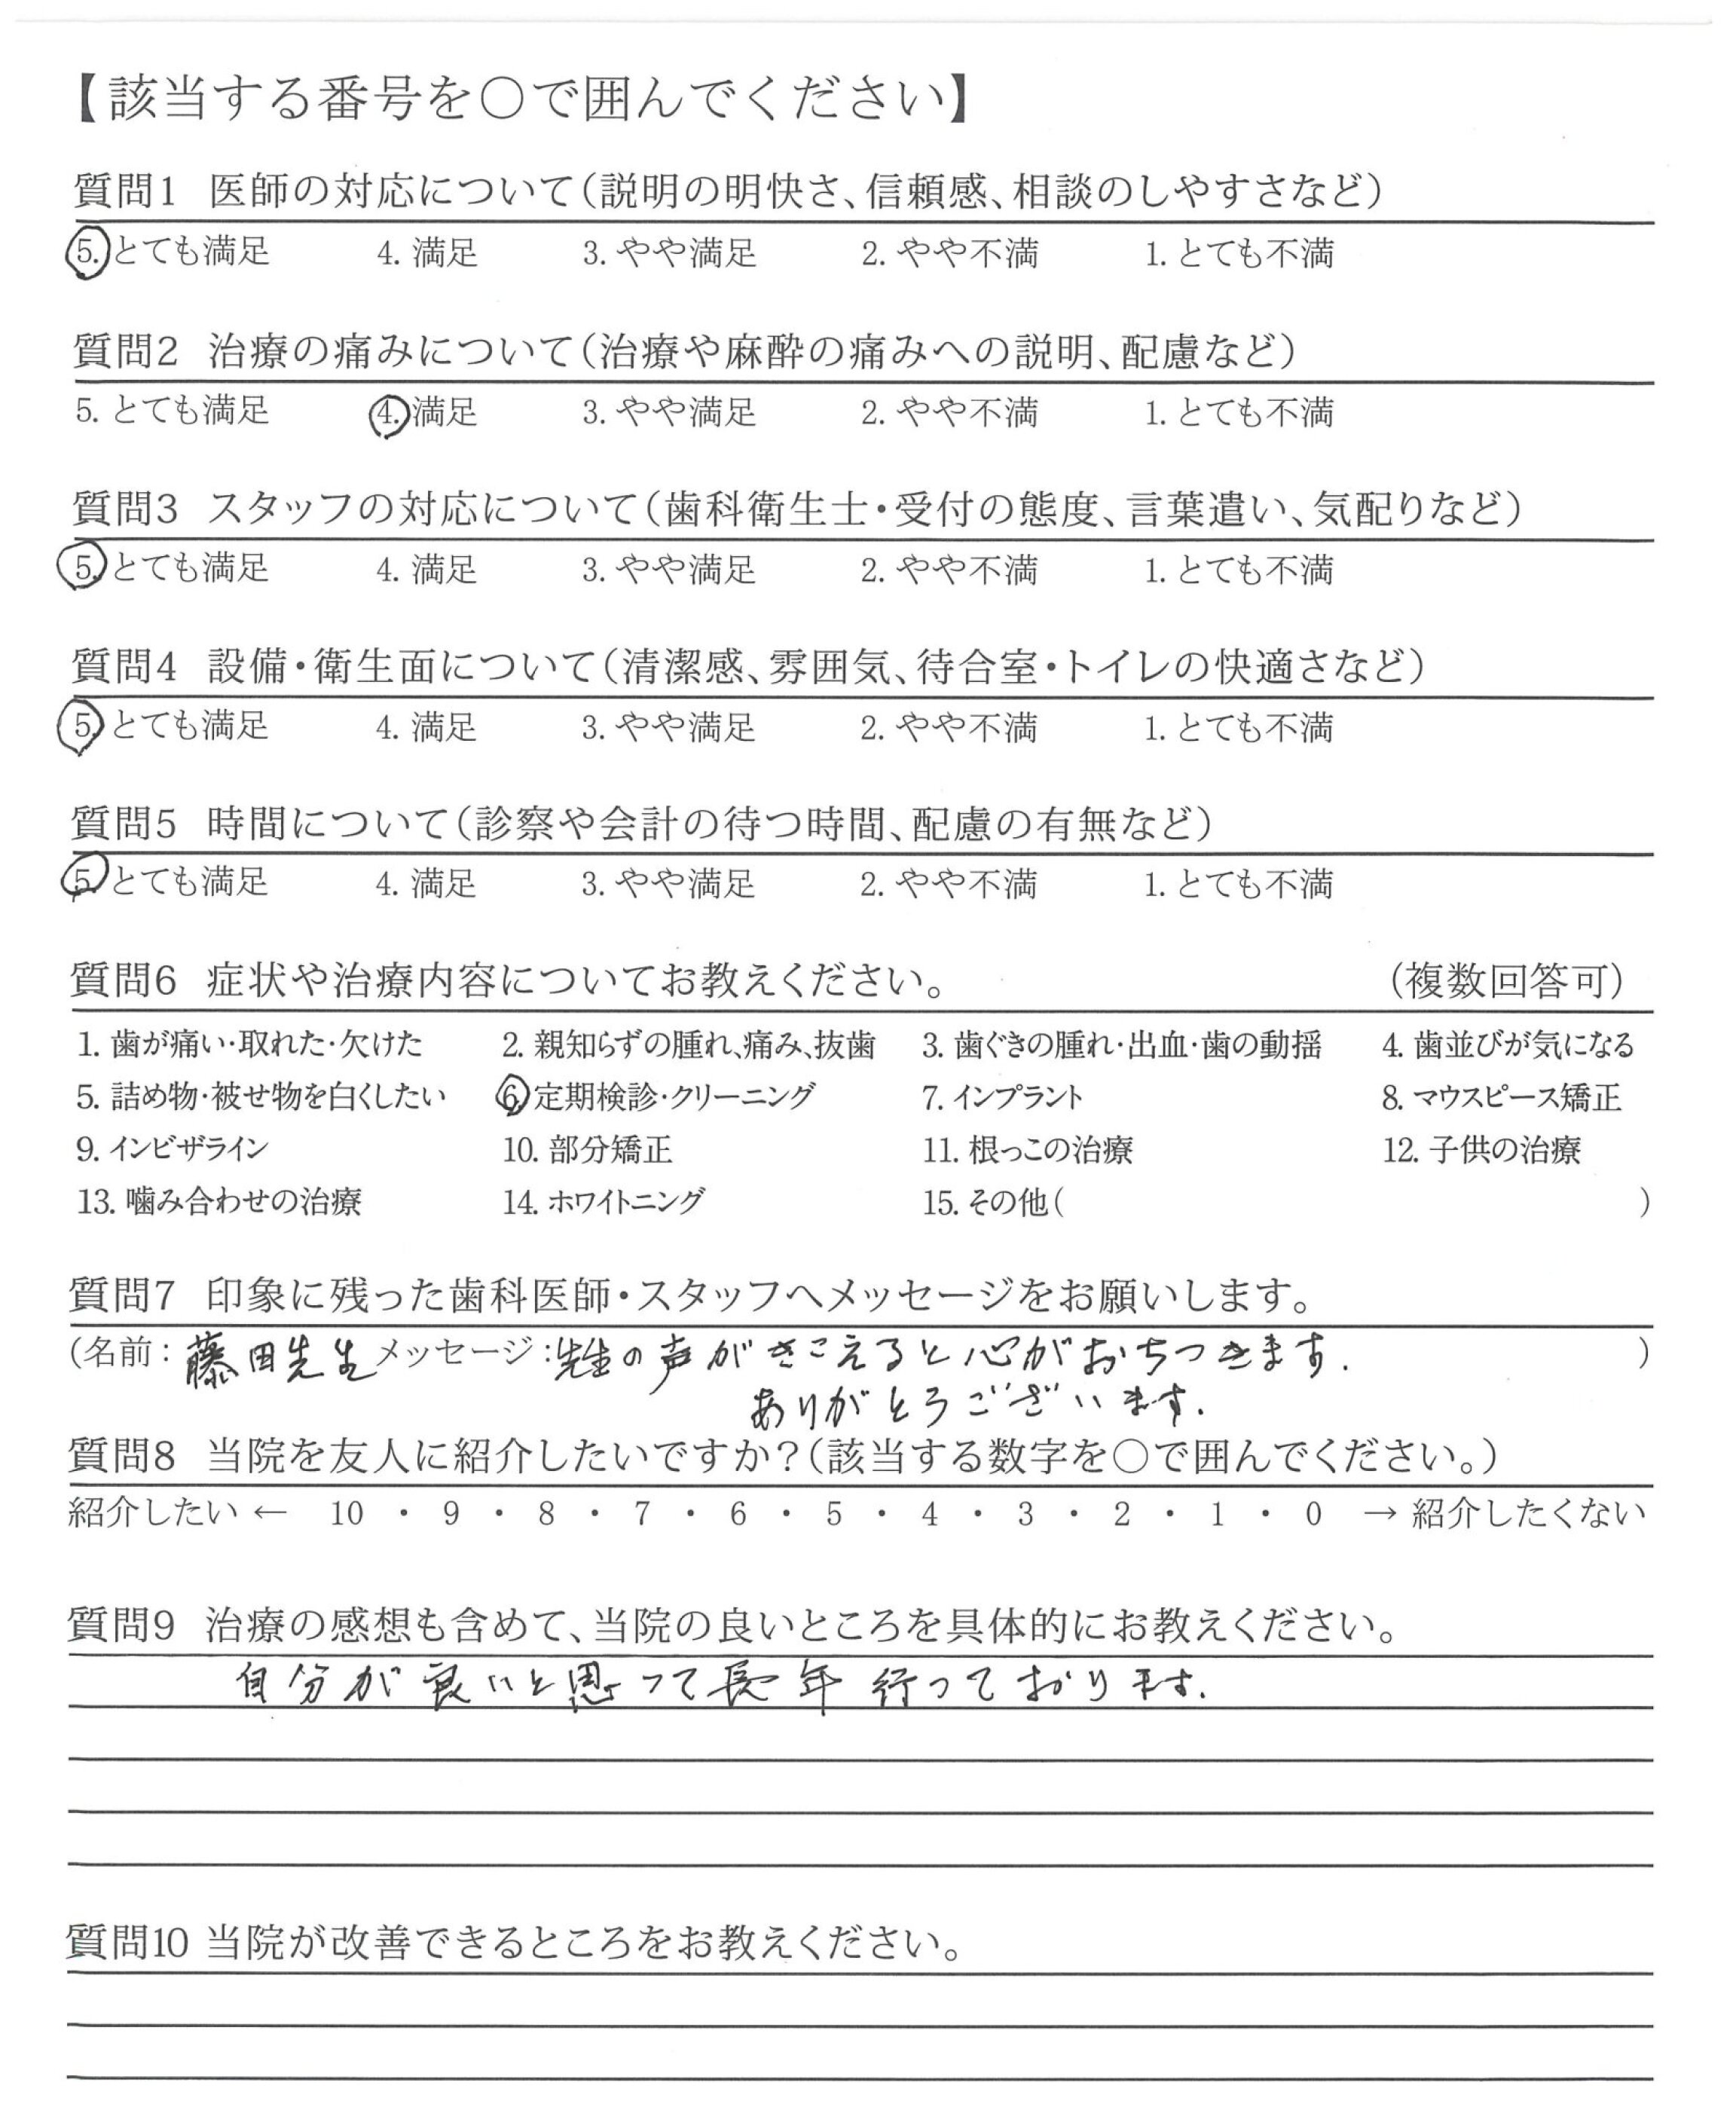 【該当する番号を○で囲んでください】
質問1 医師の対応について(説明の明快さ、信頼感、相談のしやすさなど)
5. とても満足 4. 満足 3. やや満足 2. やや不満 1. とても不満
質問2 治療の痛みについて(治療や麻酔の痛みへの説明、配慮など)
5. とても満足 4. 満足 3. やや満足 2. やや不満 1. とても不満
質問3 スタッフの対応について(歯科衛生士・受付の態度、言葉遣い、気配りなど)
5. とても満足 4. 満足 3. やや満足 2. やや不満 1. とても不満
質問4 設備・衛生面について(清潔感、雰囲気、待合室・トイレの快適さなど)
5. とても満足 4. 満足 3. やや満足 2. やや不満 1. とても不満
質問5 時間について(診察や会計の待つ時間、配慮の有無など)
5. とても満足 4. 満足 3. やや満足 2. やや不満 1. とても不満
質問6 症状や治療内容についてお教えください。 (複数回答可)
1. 歯が痛い・取れた・欠けた 2. 親知らずの腫れ、痛み、抜歯 3. 歯ぐきの腫れ・出血・歯の動揺 4. 歯並びが気になる
5. 詰め物・被せ物を白くしたい 6. 定期検診・クリーニング 7. インプラント 8. マウスピース矯正
9. インビザライン 10. 部分矯正 11. 根っこの治療 12. 子供の治療
13. 噛み合わせの治療 14. ホワイトニング 15. その他( )
質問7 印象に残った歯科医師・スタッフへメッセージをお願いします。
(名前: 藤田先生 メッセージ: 先生の声がきこえると心がおちつきます. )
ありがとうございます.
質問8 当院を友人に紹介したいですか?(該当する数字を○で囲んでください。)
紹介したい ← 10 ・ 9 ・ 8 ・ 7 ・ 6 ・ 5 ・ 4 ・ 3 ・ 2 ・ 1 ・ 0 → 紹介したくない
質問9 治療の感想も含めて、当院の良いところを具体的にお教えください。
自分が良いと思って長年行っております.
質問10 当院が改善できるところをお教えください。